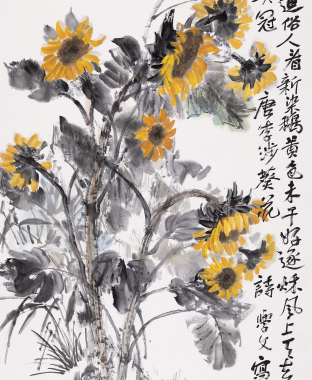 遣俗人看新染鵝黃色未干好逐秋風上天去
冠 唐李涉葵花詩 寫